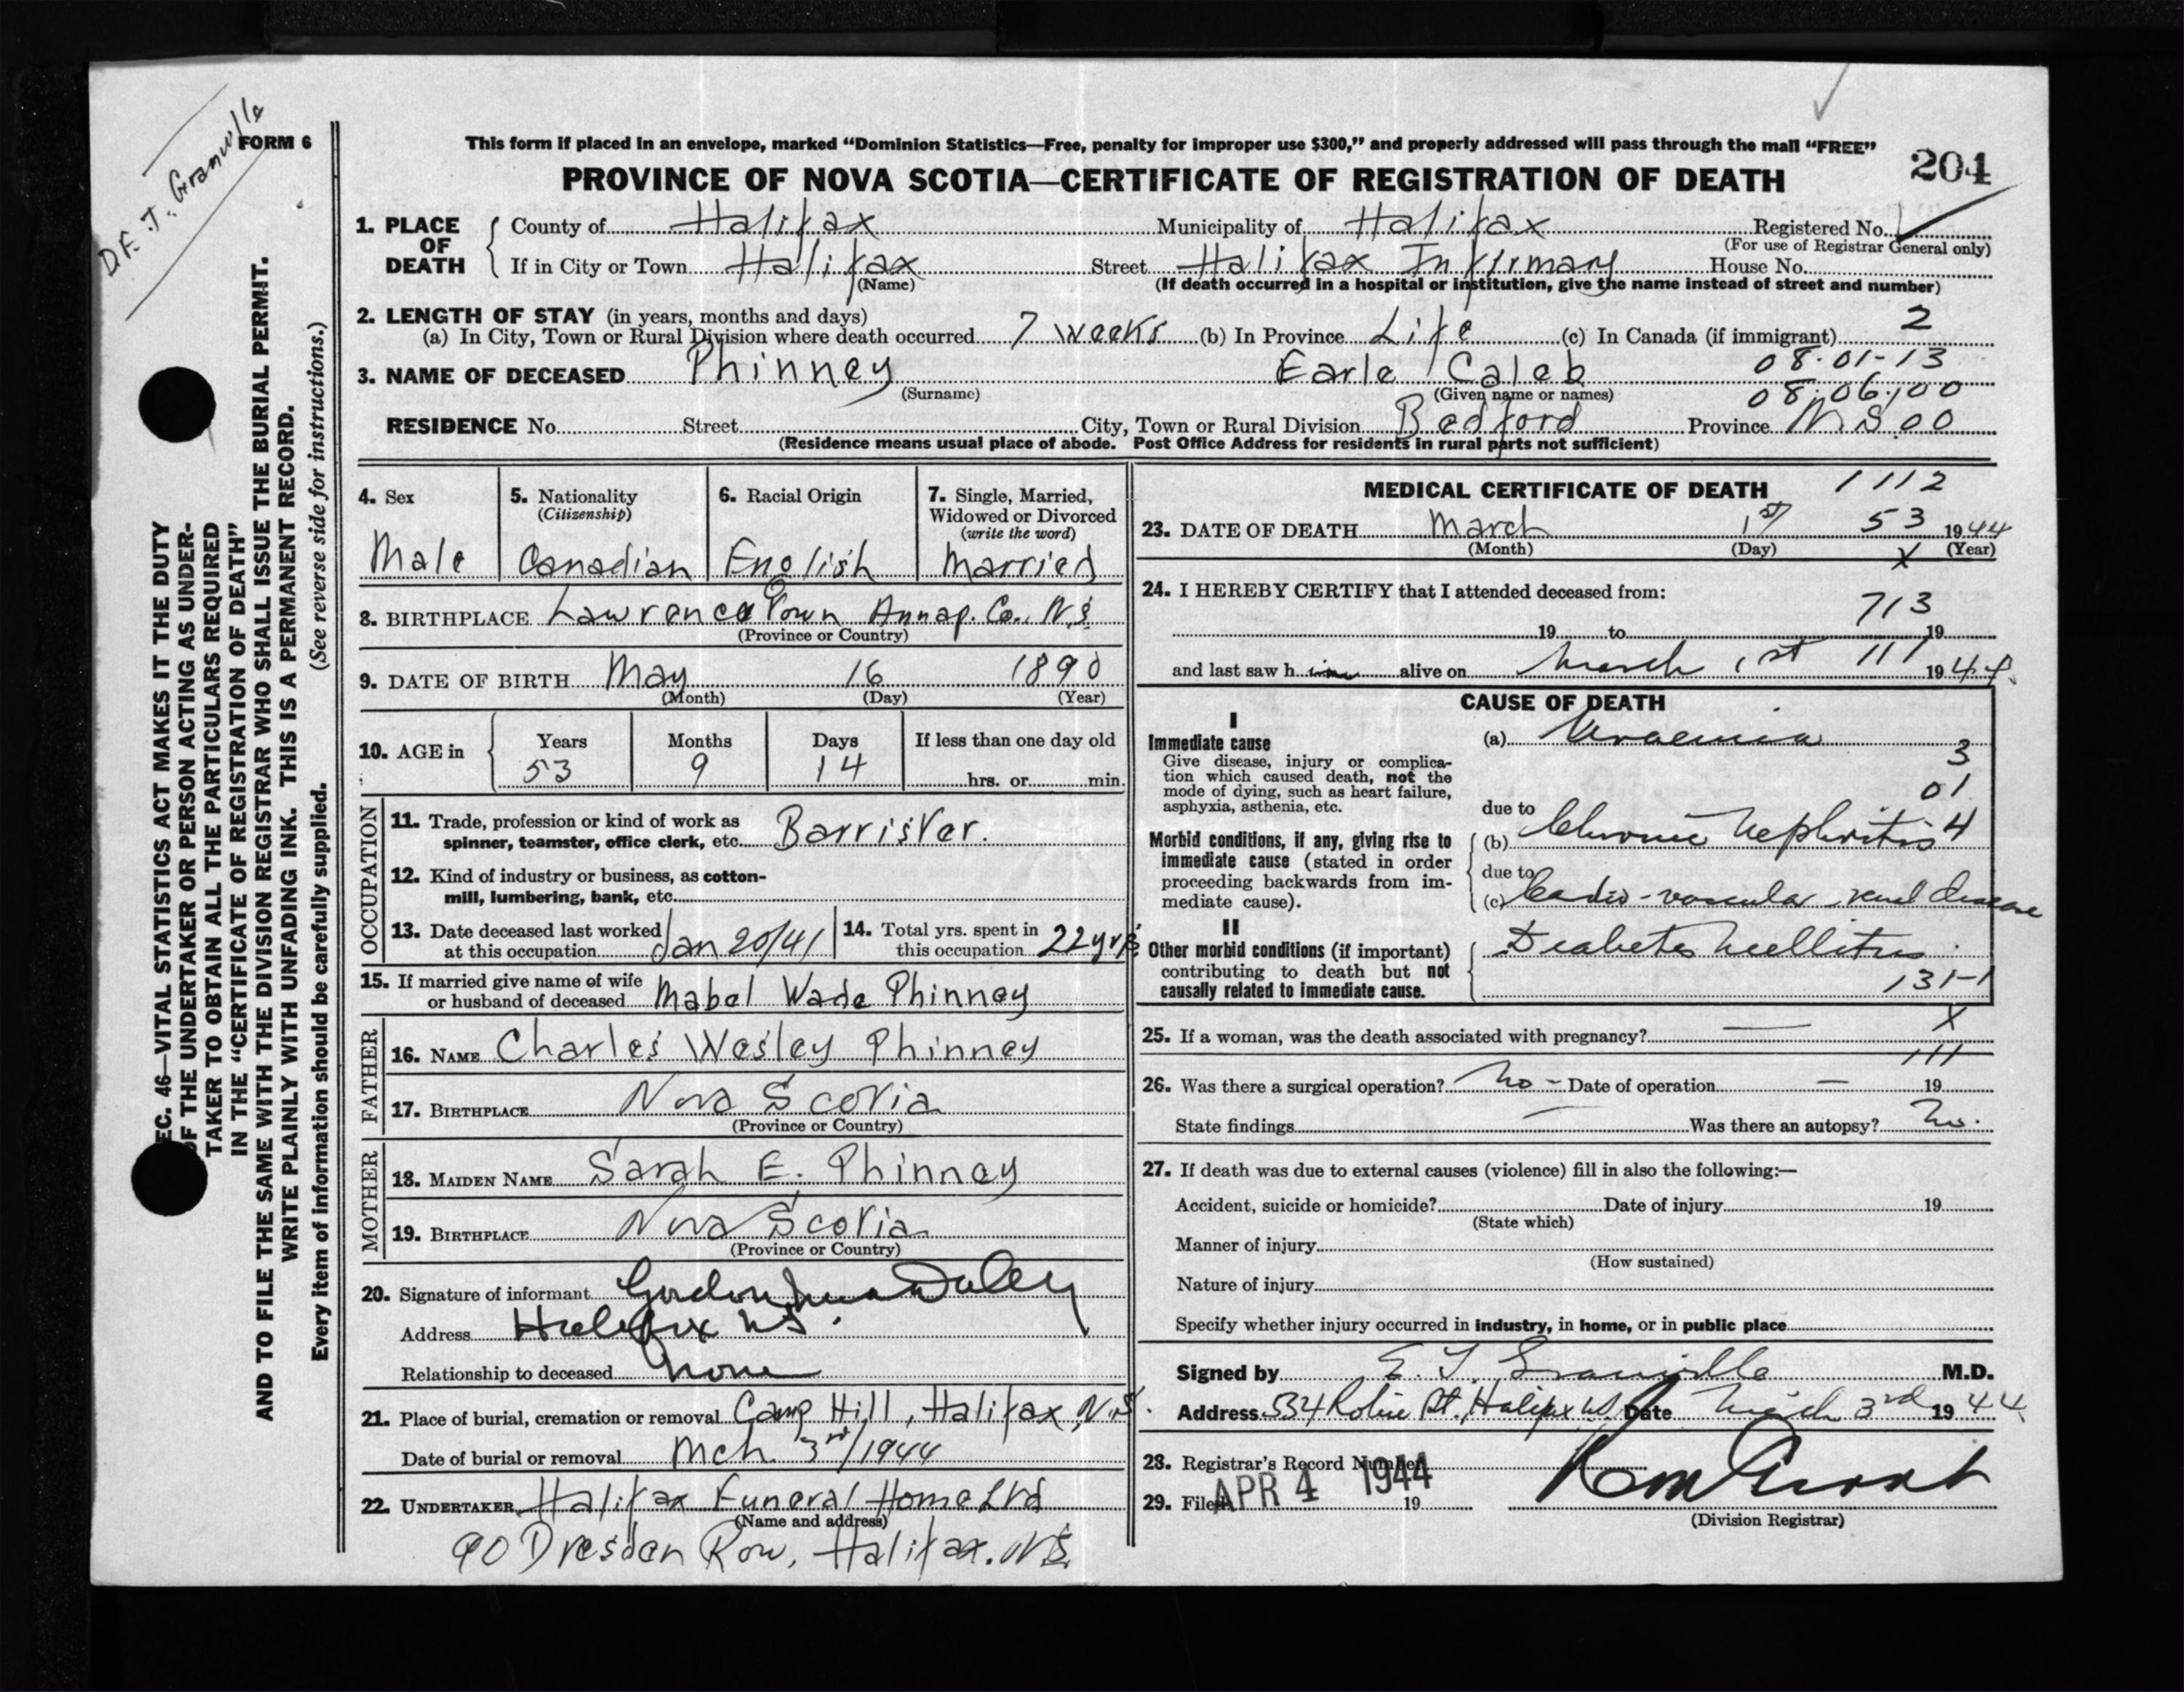 DF. T. Granville
FORM 6
This form if placed in an envelope, marked “Dominion Statistics—Free, penalty for improper use $300,” and properly addressed will pass through the mail “FREE”
204
PROVINCE OF NOVA SCOTIA—CERTIFICATE OF REGISTRATION OF DEATH
1. PLACE OF DEATH County of Halifax Municipality of Halifax Registered No.
(For use of Registrar General only)
If in City or Town Halifax Street Halifax Infirmary House No.
(Name) (If death occurred in a hospital or institution, give the name instead of street and number)
2. LENGTH OF STAY (in years, months and days)
(a) In City, Town or Rural Division where death occurred 7 weeks (b) In Province Life (c) In Canada (if immigrant) 2
08-01-13
3. NAME OF DECEASED Phinney Earle Caleb
(Surname) (Given name or names) 08.06.00
RESIDENCE No. Street City, Town or Rural Division Bedford Province N.S. 00
(Residence means usual place of abode. Post Office Address for residents in rural parts not sufficient)
4. Sex Male
5. Nationality (Citizenship) Canadian
6. Racial Origin English
7. Single, Married, Widowed or Divorced (write the word) Married
8. BIRTHPLACE Lawrencetown Annap. Co., N.S.
(Province or Country)
9. DATE OF BIRTH May 16 1890
(Month) (Day) (Year)
10. AGE in Years 53 Months 9 Days 14 If less than one day old hrs. or min.
OCCUPATION
11. Trade, profession or kind of work as spinner, teamster, office clerk, etc. Barrister.
12. Kind of industry or business, as cotton-mill, lumbering, bank, etc.
13. Date deceased last worked at this occupation Jan 20/41
14. Total yrs. spent in this occupation 22 yrs
15. If married give name of wife or husband of deceased Mabel Wade Phinney
FATHER
16. NAME Charles Wesley Phinney
17. BIRTHPLACE Nova Scotia
(Province or Country)
MOTHER
18. MAIDEN NAME Sarah E. Phinney
19. BIRTHPLACE Nova Scotia
(Province or Country)
20. Signature of informant Gordon Daley
Address Halifax N.S.
Relationship to deceased None
21. Place of burial, cremation or removal Camp Hill, Halifax N.S.
Date of burial or removal Mch. 3rd/1944
22. UNDERTAKER Halifax Funeral Home Ltd
(Name and address)
90 Dresden Row, Halifax. N.S.
MEDICAL CERTIFICATE OF DEATH 1112
23. DATE OF DEATH March 1st 53 1944
(Month) (Day) X (Year)
24. I HEREBY CERTIFY that I attended deceased from:
713
19 to 19
and last saw h im alive on March 1st 111 1944.
CAUSE OF DEATH
I
Immediate cause
Give disease, injury or complication which caused death, not the mode of dying, such as heart failure, asphyxia, asthenia, etc.
(a) Uraemia 3
01
due to
Morbid conditions, if any, giving rise to immediate cause (stated in order proceeding backwards from immediate cause).
(b) Chronic Nephritis 4
due to
(c) Cardio-vascular renal disease
II
Other morbid conditions (if important) contributing to death but not causally related to immediate cause.
Diabetes Mellitus
131-1
25. If a woman, was the death associated with pregnancy? — X
111
26. Was there a surgical operation? No — Date of operation — 19
State findings — Was there an autopsy? No.
27. If death was due to external causes (violence) fill in also the following:—
Accident, suicide or homicide? Date of injury 19
(State which)
Manner of injury
(How sustained)
Nature of injury
Specify whether injury occurred in industry, in home, or in public place
Signed by E. T. Granville M.D.
Address 334 Robie St., Halifax N.S. Date March 3rd 1944
28. Registrar's Record Number
29. Filed APR 4 1944 19
(Division Registrar)
SEC. 46—VITAL STATISTICS ACT MAKES IT THE DUTY
OF THE UNDERTAKER OR PERSON ACTING AS UNDER-
TAKER TO OBTAIN ALL THE PARTICULARS REQUIRED
IN THE “CERTIFICATE OF REGISTRATION OF DEATH”
AND TO FILE THE SAME WITH THE DIVISION REGISTRAR WHO SHALL ISSUE THE BURIAL PERMIT.
WRITE PLAINLY WITH UNFADING INK. THIS IS A PERMANENT RECORD.
Every item of information should be carefully supplied. (See reverse side for instructions.)